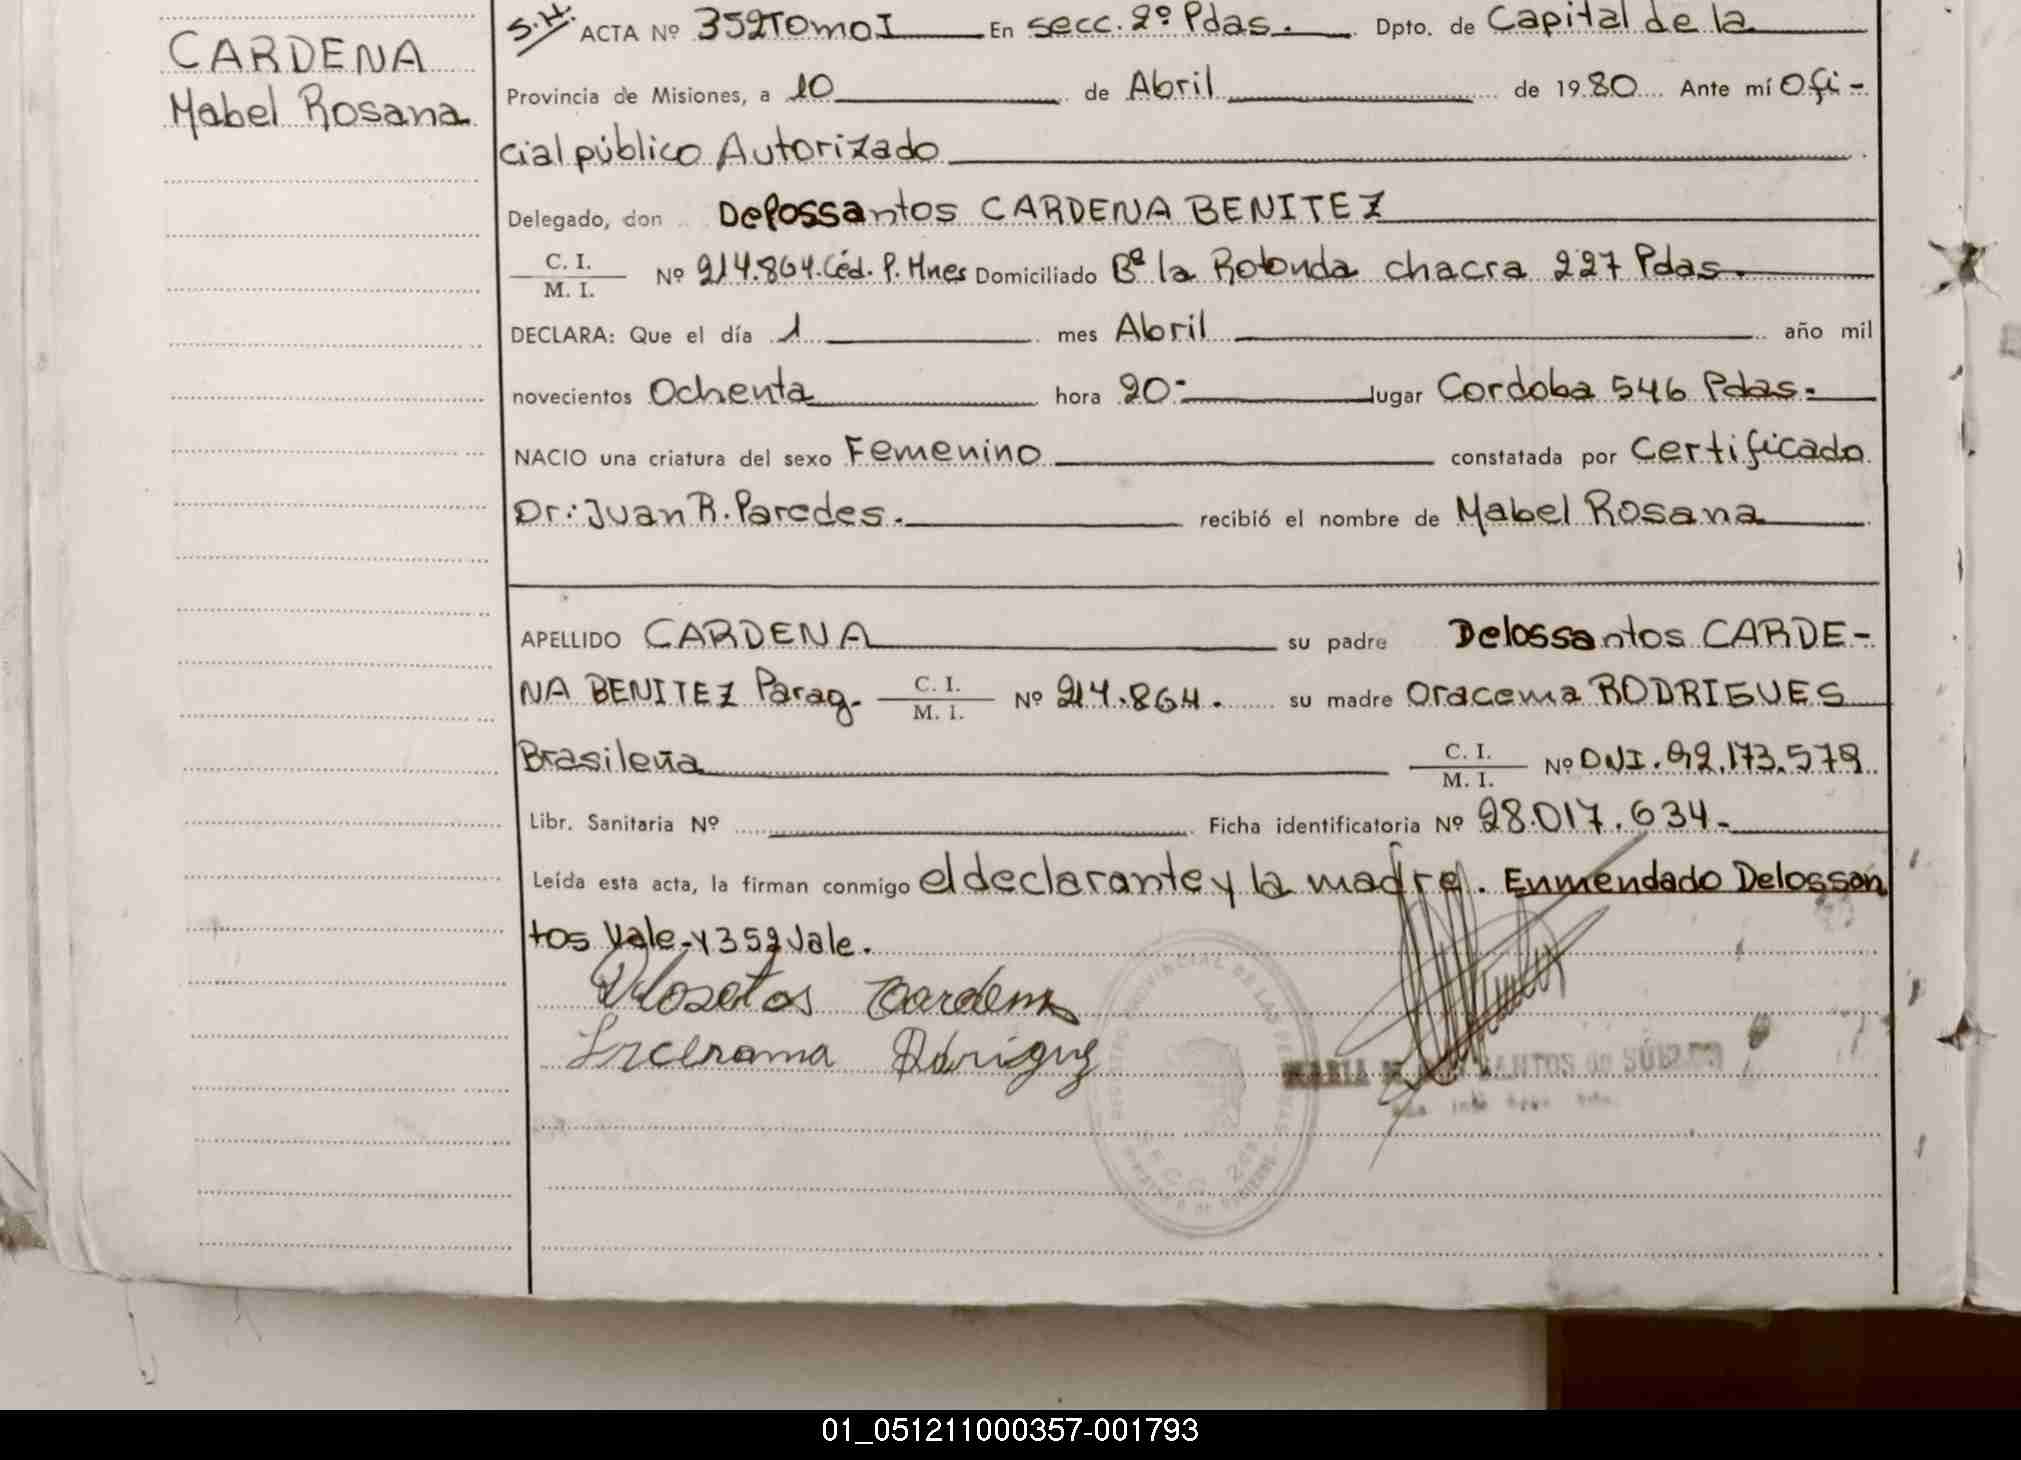 CARDENA
Mabel Rosana
S.H. ACTA Nº 352 Tomo I En secc. 2º Pdas. Dpto. de Capital de la
Provincia de Misiones, a 10 de Abril de 1980 Ante mí Ofi-
cial público Autorizado
Delegado, don Delossantos CARDENA BENITEZ
C. I.
M. I. Nº 214.864. Céd. P. Mnes Domiciliado Bº la Rotonda chacra 227 Pdas.
DECLARA: Que el día 1 mes Abril año mil
novecientos Ochenta hora 20- lugar Cordoba 546 Pdas.
NACIO una criatura del sexo Femenino constatada por Certificado
Dr: Juan R. Paredes. recibió el nombre de Mabel Rosana
APELLIDO CARDENA su padre Delossantos CARDE-
NA BENITEZ Parag. C. I.
M. I. Nº 214.864. su madre Oracema RODRIGUES
Brasileña C. I.
M. I. Nº DNI. 92.173.579
Libr. Sanitaria Nº Ficha identificatoria Nº 28.017.634-
Leída esta acta, la firman conmigo el declarante y la madre. Enmendado Delossan
tos Vale-y 352 Vale.
Cardena
MARIA SANTOS de
01_051211000357-001793